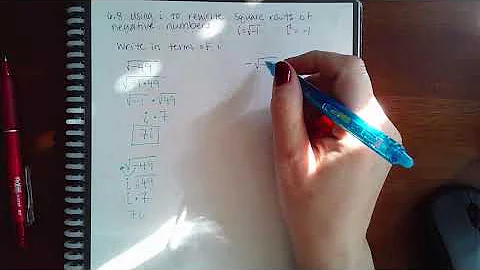 6.8 Using i to rewrite square roots of
negative numbers i=√-1 i² = -1
Write in terms of i
√-49
√-1•49
√-1 • √49
i • 7
7i
√-49
i √49
i • 7
7i
-√